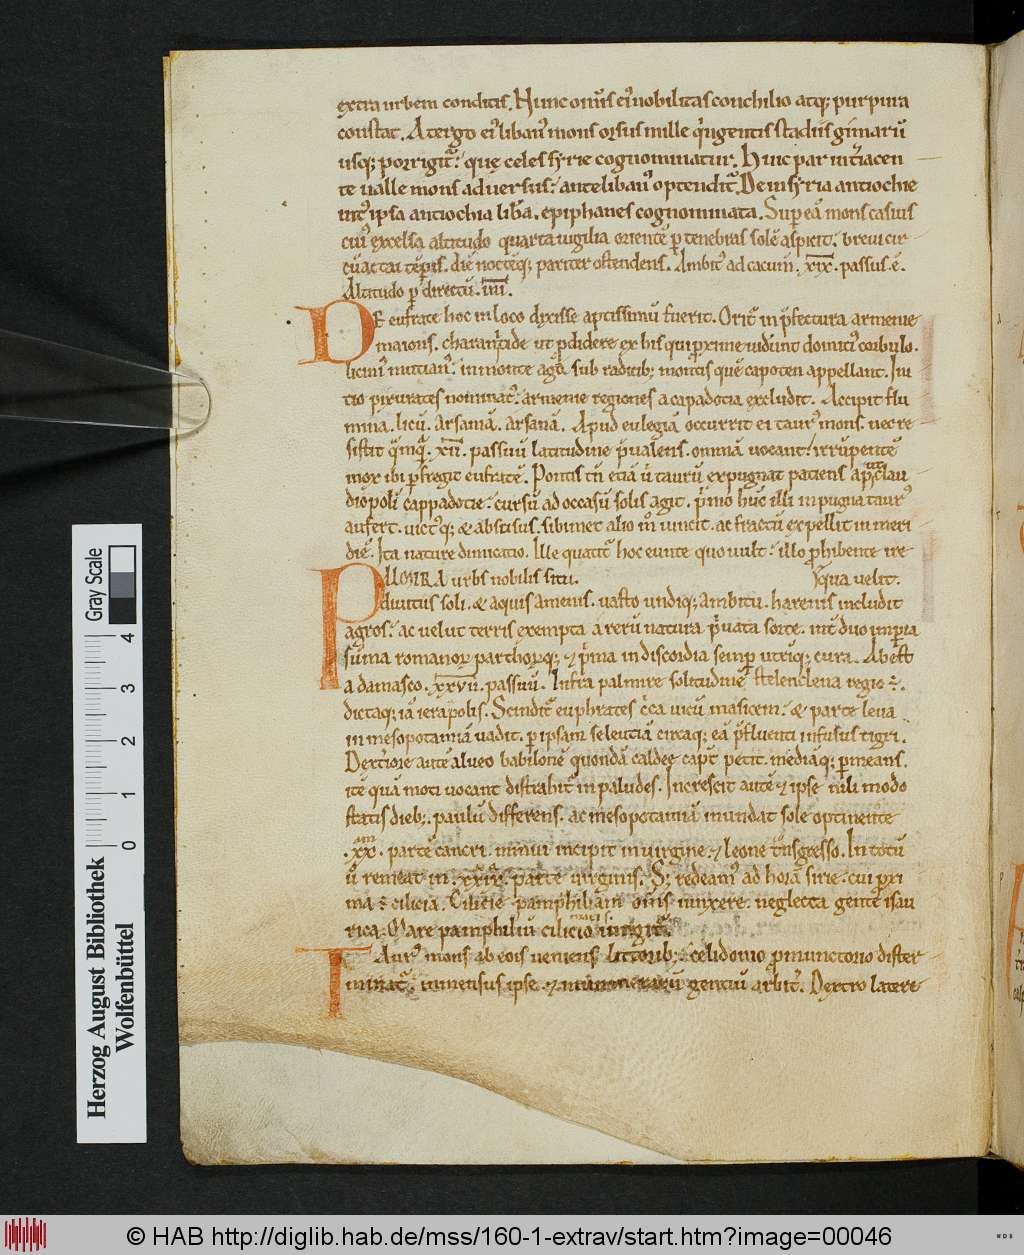 extra urbem conditis. Hunc om̅s ei᷒ nobilitas conchilio atq; purpura
constat. A tergo ei᷒ liban᷒ mons orsus mille q̇ngentis stadiis
usq; porrigit᷑. que celes syrie cognominatur. Huic par int᷑iacen
te ualle mons aduersus. anteliban᷒ optendit᷑. De in syria antiochie
int᷑ ipsa antiochia lib᷑a. epiphanes cognominata. Sup eā mons casius
cui᷒ excelsa altitudo quarta uigilia orientē p tenebras solē aspicit. breui cir
cūactu tēpis. diē noctēq; pariter ostendens. Ambit᷒ ad cacum̄. xix. passus ē.
Altitudo p directū. iiii.
DE eufrate hoc in loco dixisse aptissimū fuerit. Orit᷑ in p̄fectura armenie
maioris. ut pdidere ex his qui pxime uiderunt domiti᷒ corbulo.
licini᷒ mutian᷒. in monte aga sub radicib; montis quē capoten appellant. Ini
tio pixurates nominat᷒. armenie regiones a capadocia excludit. Accipit flu
mina. licū. arsamā. arsanā. Apud eulegiā occurrit ei taur᷒ mons. nec re
sistit q̇mq̄. xii. passuū latitudine p̄ualens. ommā uocant irrūpentē
mox ubi pfregit eufratē. Pontis tn̄ etiā ū taurū expugnat patiens ap clau
diopoli cappadocie. cursū ad occasū solis agit. ṗmo huc illi in pugna taur᷒
aufert. uict᷒q; & abscisus. sibimet alio m̊ uincit. ac fractū expellit in meri
diē. Ita nature dimicatio. Ille quatit᷑ hoc eunte quo uult. illo phibente ire
PALMIRA urbs nobilis situ. qua uelit.
diuitiis soli. & aquis amenis. uasto undiq; ambitu. harenis includit
agros. ac uelut terris exempta a rerū natura ṗuata sorte. int᷑ duo imperia
sūma romanor parthorq; & ṗma in discordia semp utriq; cura. Abest
a damasco. xxvii. passuū. Infra palmire solitudinē stelenclena regio ē.
dictaq; iā ierapolis. Scindit᷑ euphrates c̊ca uicū masicem. & parte leua
in mesopotamiā uadit. p ipsam seleuciā circaq; eā p̄fluenti infusus tigri.
Dext᷑iore autē alueo babilonē quondā caldee caput petit. mediāq; pmeans.
itē quā moti uocant distrahit᷑ in paludes. Increscit autē & ipse nili modo
statis dieb;. paulū differens. ac mesopotamiā inundat sole optinente
.xx. partē cancri. minui incipit in uirgine. & leone t᷑nsgresso. In totū
ū remeat in .xxix. parte uirginis. S; redeam᷒ ad hora sirie. cui pxi
ma ē cilicia. Cilicie pamphiliam om̄s iunxere. neglecta gente isau
rica. Mare pamphiliū cilicio iungit᷑.
TAur᷒ mons ab eois ueniens littorib;. celidonio pmunctorio dister
minat᷑. inmensus ipse. & gentiū arbit᷒. Dextro latere
Gray Scale
4 3 2 1 0
Herzog August Bibliothek
Wolfenbüttel
© HAB http://diglib.hab.de/mss/160-1-extrav/start.htm?image=00046